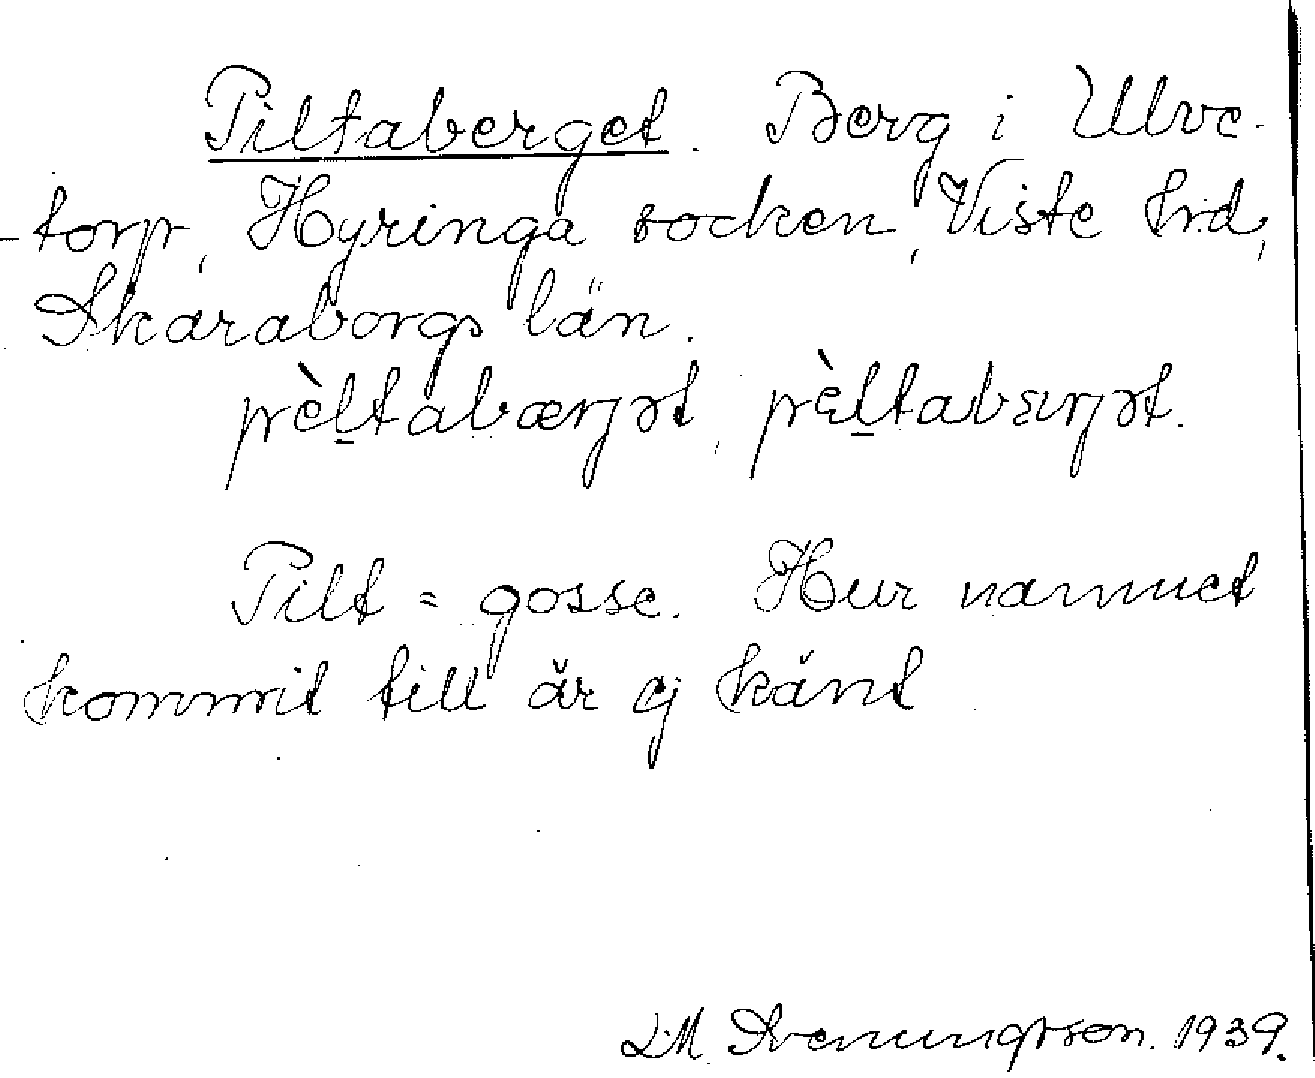 Piltaberget. Berg i Ulve-
torp, Hyringa socken, Viste hrd,
Skaraborgs län.
pèḻtabærɡət, pèḻtabɛrɡət.
Pilt = gosse. Hur namnet
kommit till är ej känt.
L.M. Svenungsson. 1939.